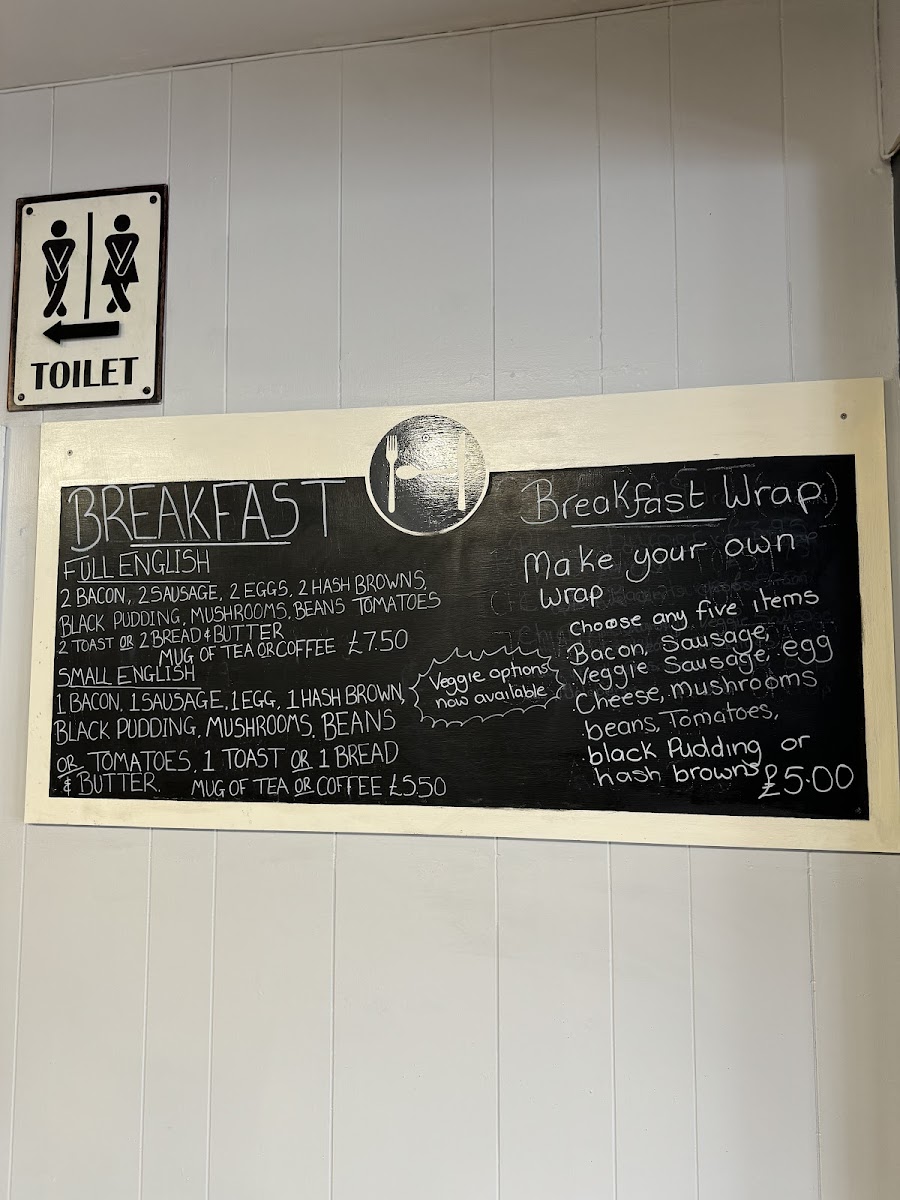 TOILET
BREAKFAST
FULL ENGLISH
2 BACON, 2 SAUSAGE, 2 EGGS, 2 HASH BROWNS,
BLACK PUDDING, MUSHROOMS, BEANS TOMATOES
2 TOAST OR 2 BREAD & BUTTER
MUG OF TEA OR COFFEE £7.50
SMALL ENGLISH
1 BACON, 1 SAUSAGE, 1 EGG, 1 HASH BROWN,
BLACK PUDDING, MUSHROOMS, BEANS
OR TOMATOES, 1 TOAST OR 1 BREAD
& BUTTER. MUG OF TEA OR COFFEE £5.50
Veggie options
now available
Breakfast Wrap
Make your own
wrap
Choose any five items
Bacon, Sausage,
Veggie Sausage, egg
Cheese, mushrooms
beans, Tomatoes,
black Pudding or
hash browns
£5.00